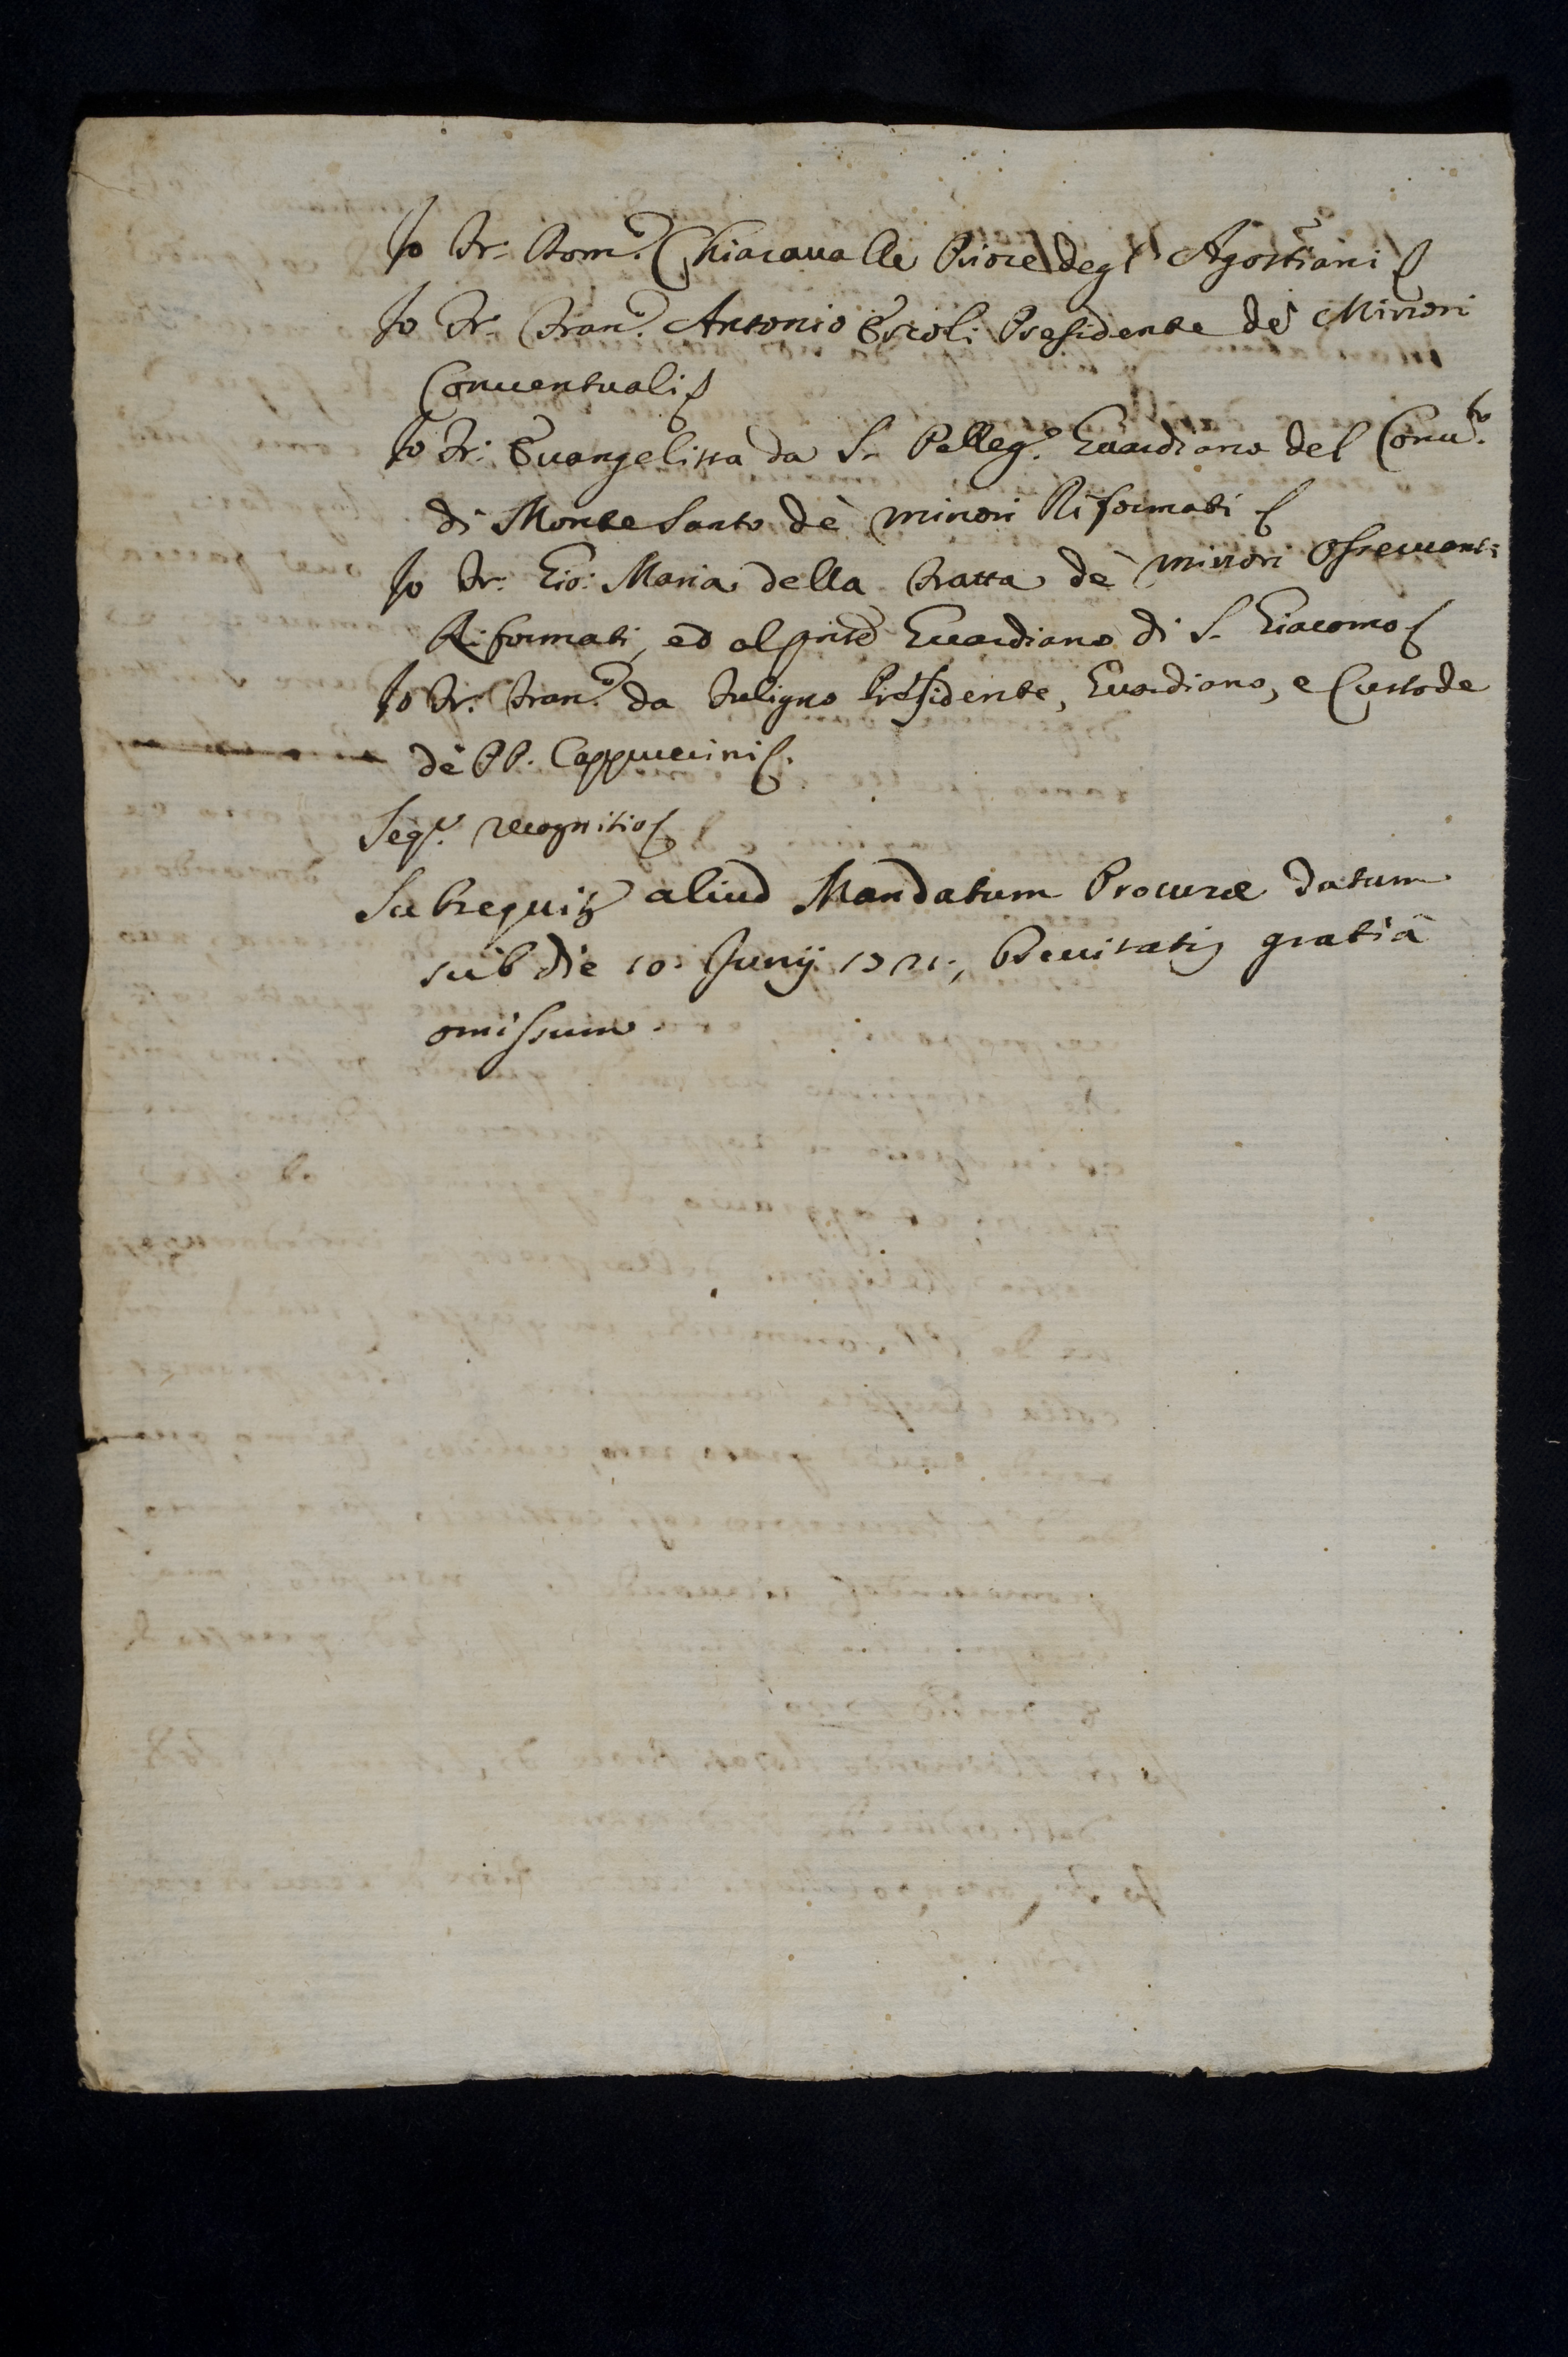 Io Fr. Dom.º Chiaravalle Priore degl' Agostiani
Io Fr. Fran.º Antonio Ercoli Presidente de' Minori
Conventuali
Io Fr. Evangelista da S. Pelleg.º Guardiano del Conv.to
di Monte Santo dè minori Riformati
Io Fr. Gio: Maria della Fratta dè minori Osservanti
Riformati, ed al pnte Guardiano di S. Giacomo
Io Fr. Fran.º da Fuligno Presidente, Guardiano, e Custode
dè PP. Cappuccini.
Seq.r recognitio
Subsequitr aliud Mandatum Procuræ datum
sub die 10. Junij 1721., brevitatis gratiâ
omissum.